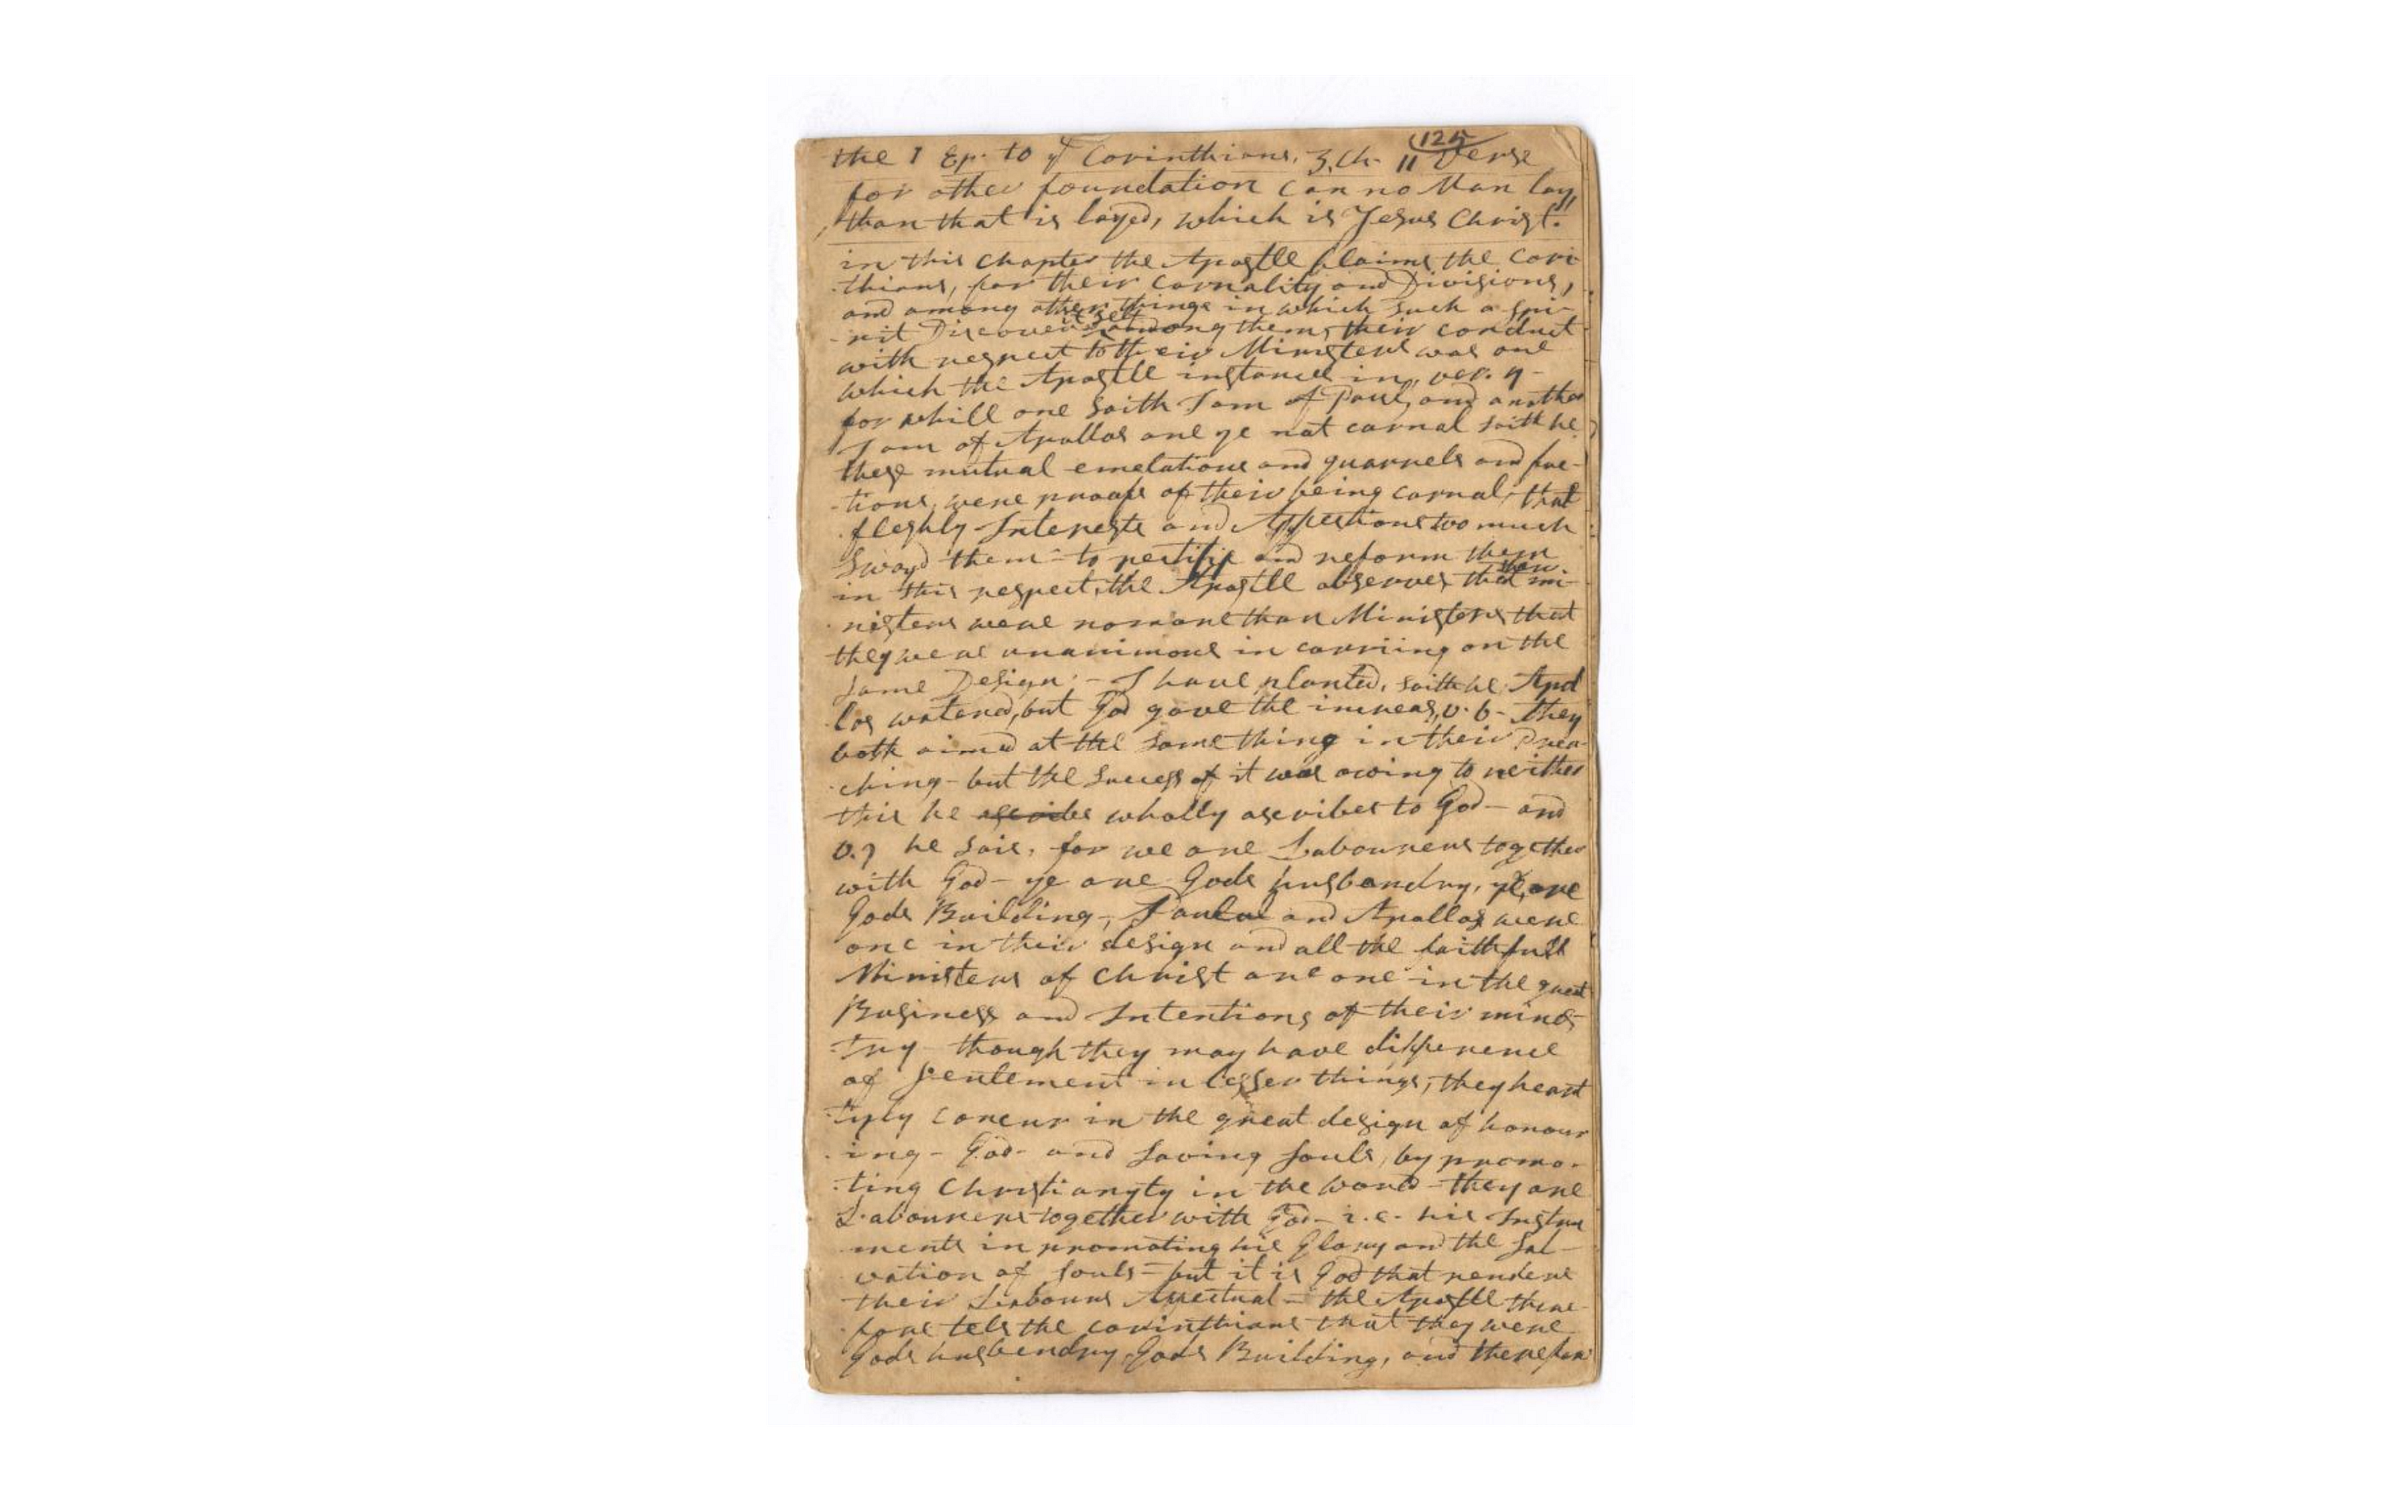 125
the 1 Ep. to ye Corinthians. 3. Ch. 11 Verse
for other foundation can no Man lay
than that is layed, which is Jesus Christ."
in this chapter the Apostle blaims the Cori-
thians, for their carnality and Divisions,
and among other things in which such a spi-
-rit Discovers itself among them, their conduct
with respect to their Ministers was one
which the Apostle instances in, ver. 4 -
for whill one saith I am of Paul, and another
I am of Apollos are ye not carnal saith he
these mutual emelations and quarrels and fac-
-tions, were proofs of their being carnal, that
fleshly Interests and Affections too much
swayd them - to rectifie and reform them
in this respect, the Apostle observes, that mi-
-nisters were no more than Ministers that
they were unanimous in carriing on the
same Design: - I have planted, saith he, Apol
los watered, but God gave the increas, v. 6 - they
both aimed at the same thing in their Prea-
-ching - but the success of it was owing to neither
this he ascribes wholly ascribes to God - and
v. 9 he sais, for we are Labourers together
with God - ye are Gods husbandry, ye are
Gods Building -, and Apollos were
one in their design and all the faithfull
Ministers of Christ are one in the great
Business and Intentions of their minis-
-try - though they may have difference
of sentement in lesser things, they heart
-tyly concur in the great design of honour
-ing - God - and saving souls, by promo-
-ting Christianyty in the world - they are
Labourers together with God - i.e. his Instru
-ments in promoting his Glory and the Sal-
vation of souls = but it is God that renders
their Labours Affectual = the Apostle there-
-fore tels the corinthians that they were
Gods husbendry, Gods Building, and therefore